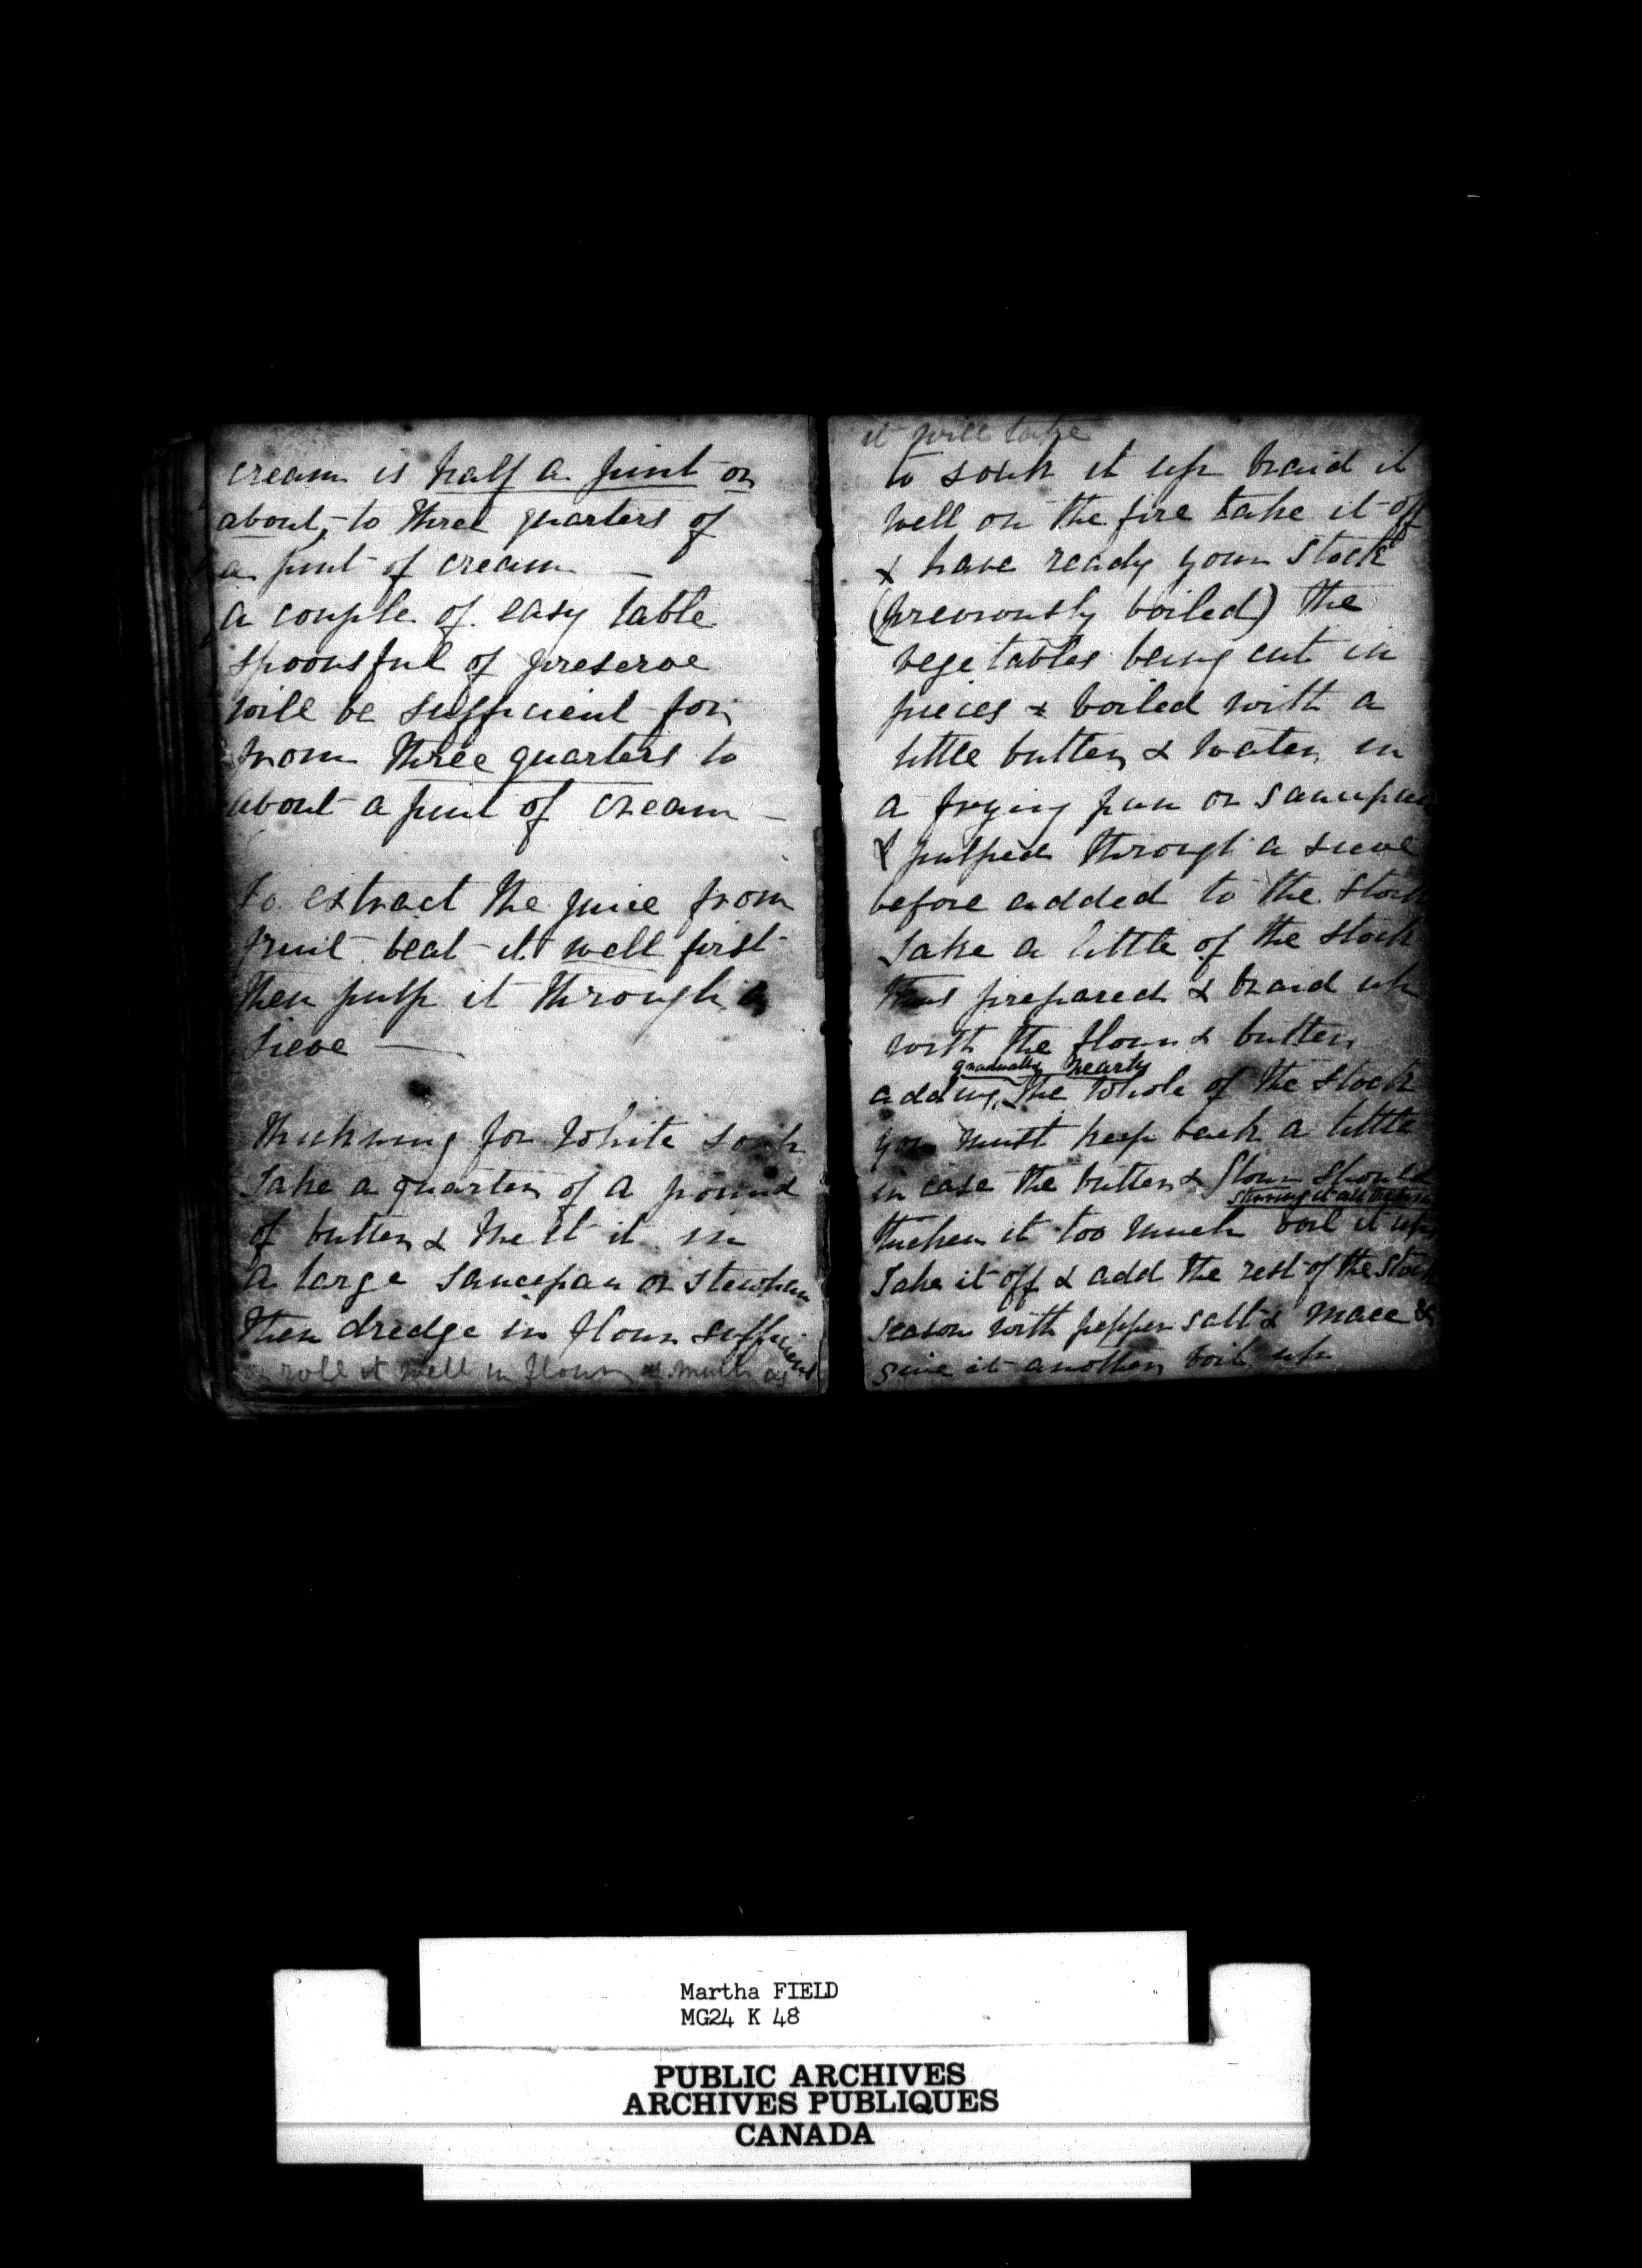 cream is half a pint or
about, to three quarters of
a pint of cream —
a couple of easy table
spoonsful of preserve
will be sufficient for
from three quarters to
about a pint of cream —
To extract the juice from
fruit beat it well first
then pulp it through a
sieve —
Thickning for White
Take a quarter of a pound
of butter & melt it in
a large saucepan or stewpan
then dredge in flour sufficient
roll it well in flour as much as
it will take
to soak it up braid it
well on the fire take it off
& have ready your stock
(previously boiled) the
vegetables being cut in
pieces & boiled with a
little butter & water in
a frying pan or saucepan
& pulped through a sieve
before added to the stock
Take a little of the stock
thus prepared & braid up
with the flour & butter
gradually nearly
adding the whole of the stock
you must keep back a little
in case the butter & flour should
stirring it all the time
thicken it too much boil it up
Take it off & add the rest of the stock
season with pepper salt & mace &
give it another boil up
Martha FIELD
MG24 K 48
PUBLIC ARCHIVES
ARCHIVES PUBLIQUES
CANADA